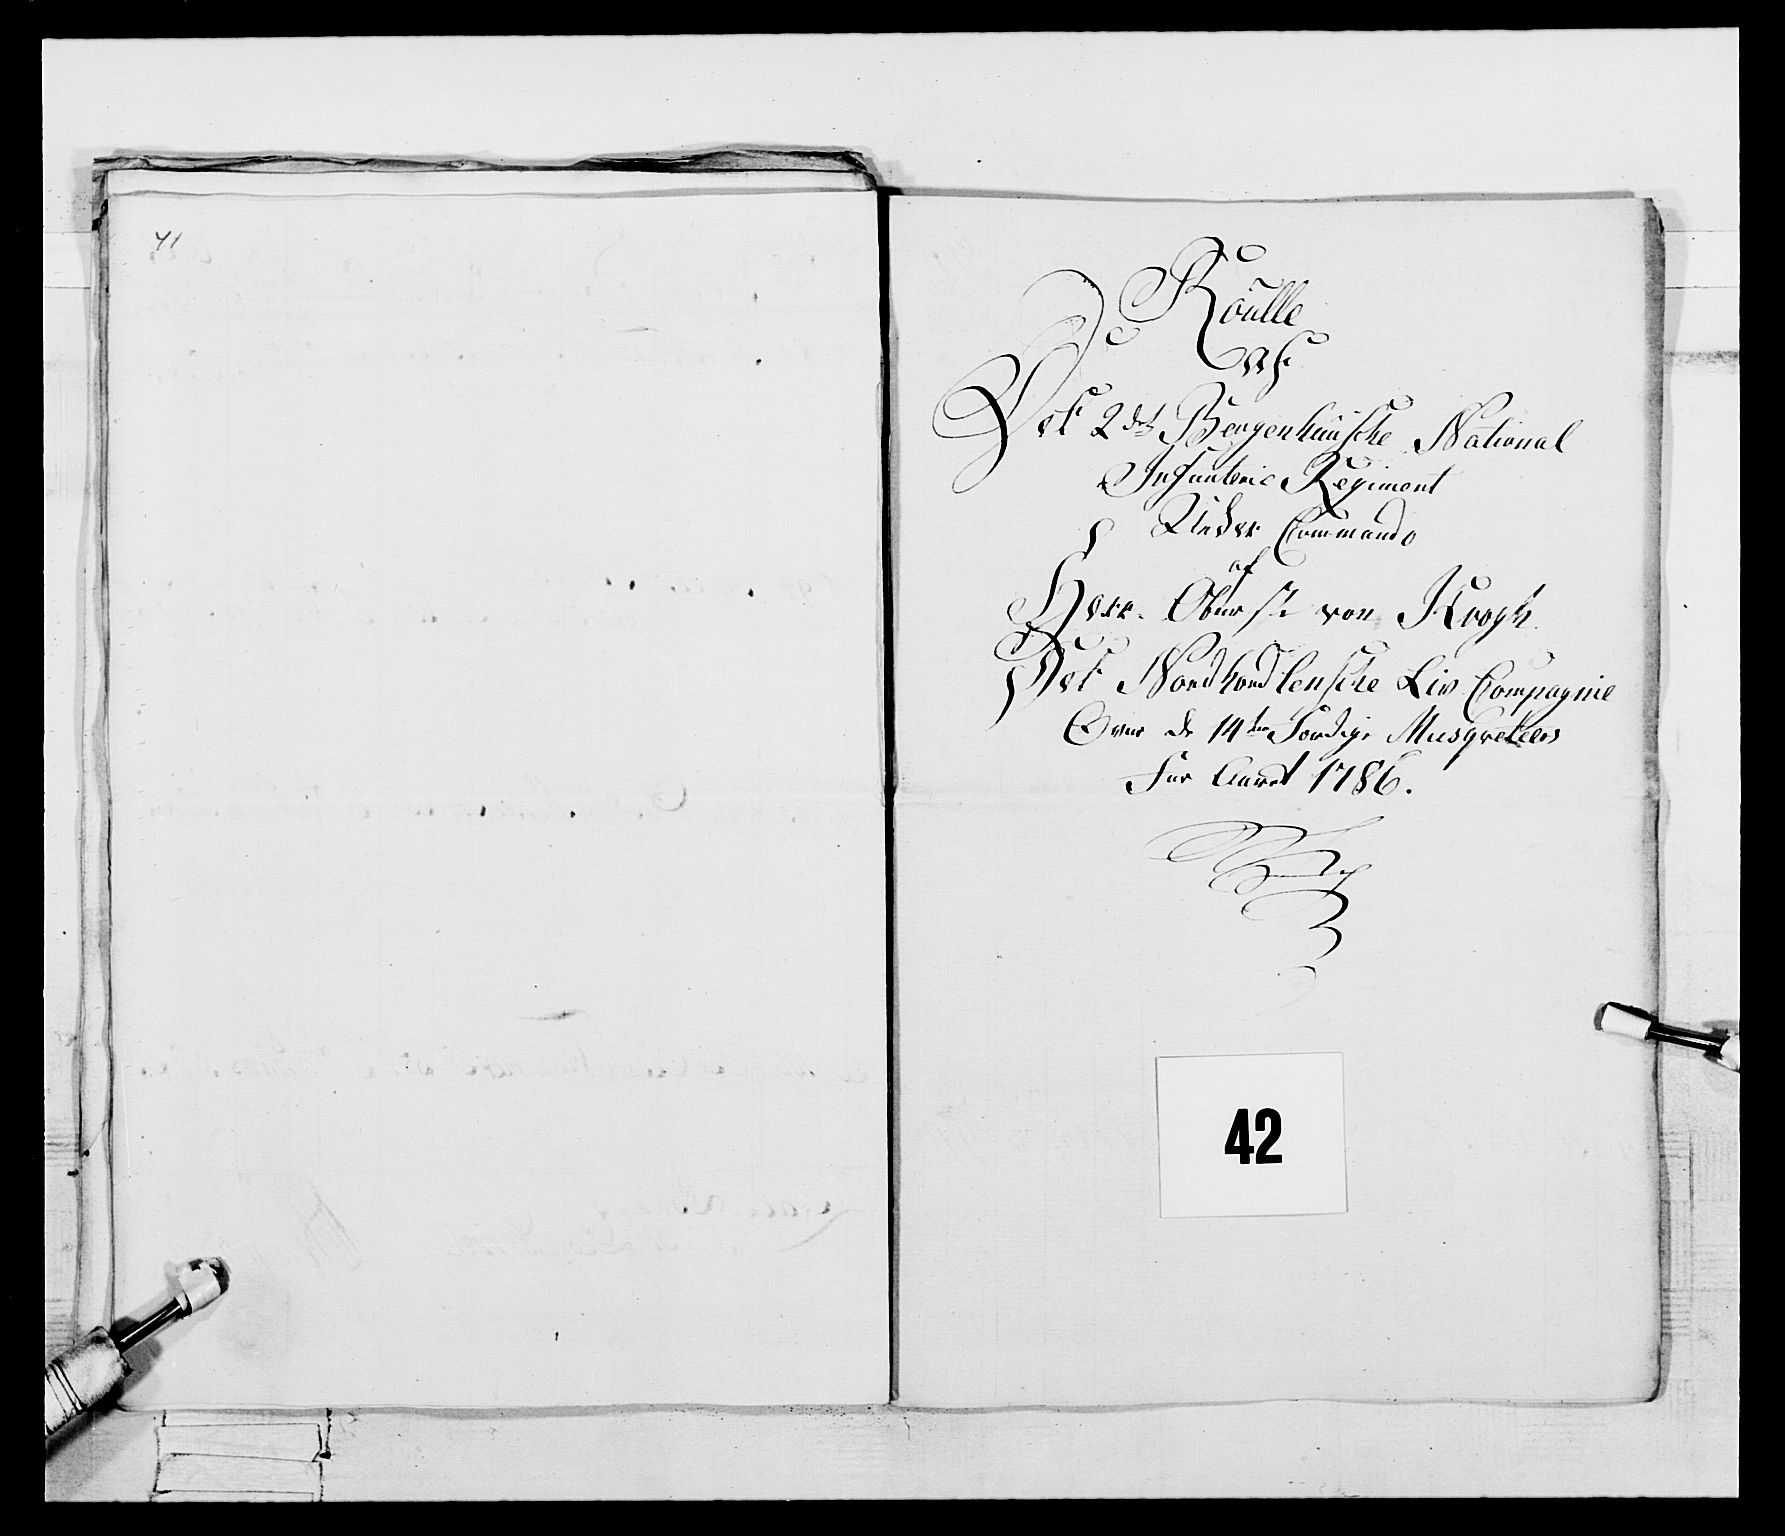 41
Roulle
af
Det 2det Bergenhuusche National
Infanterie Regiment
Under Commando
af
Herr Oberste von Krogh.
Det Nordhordlensche Liv Compagnie
Over de 14ten Fordige Musqveteers
For Aaret 1786.
42